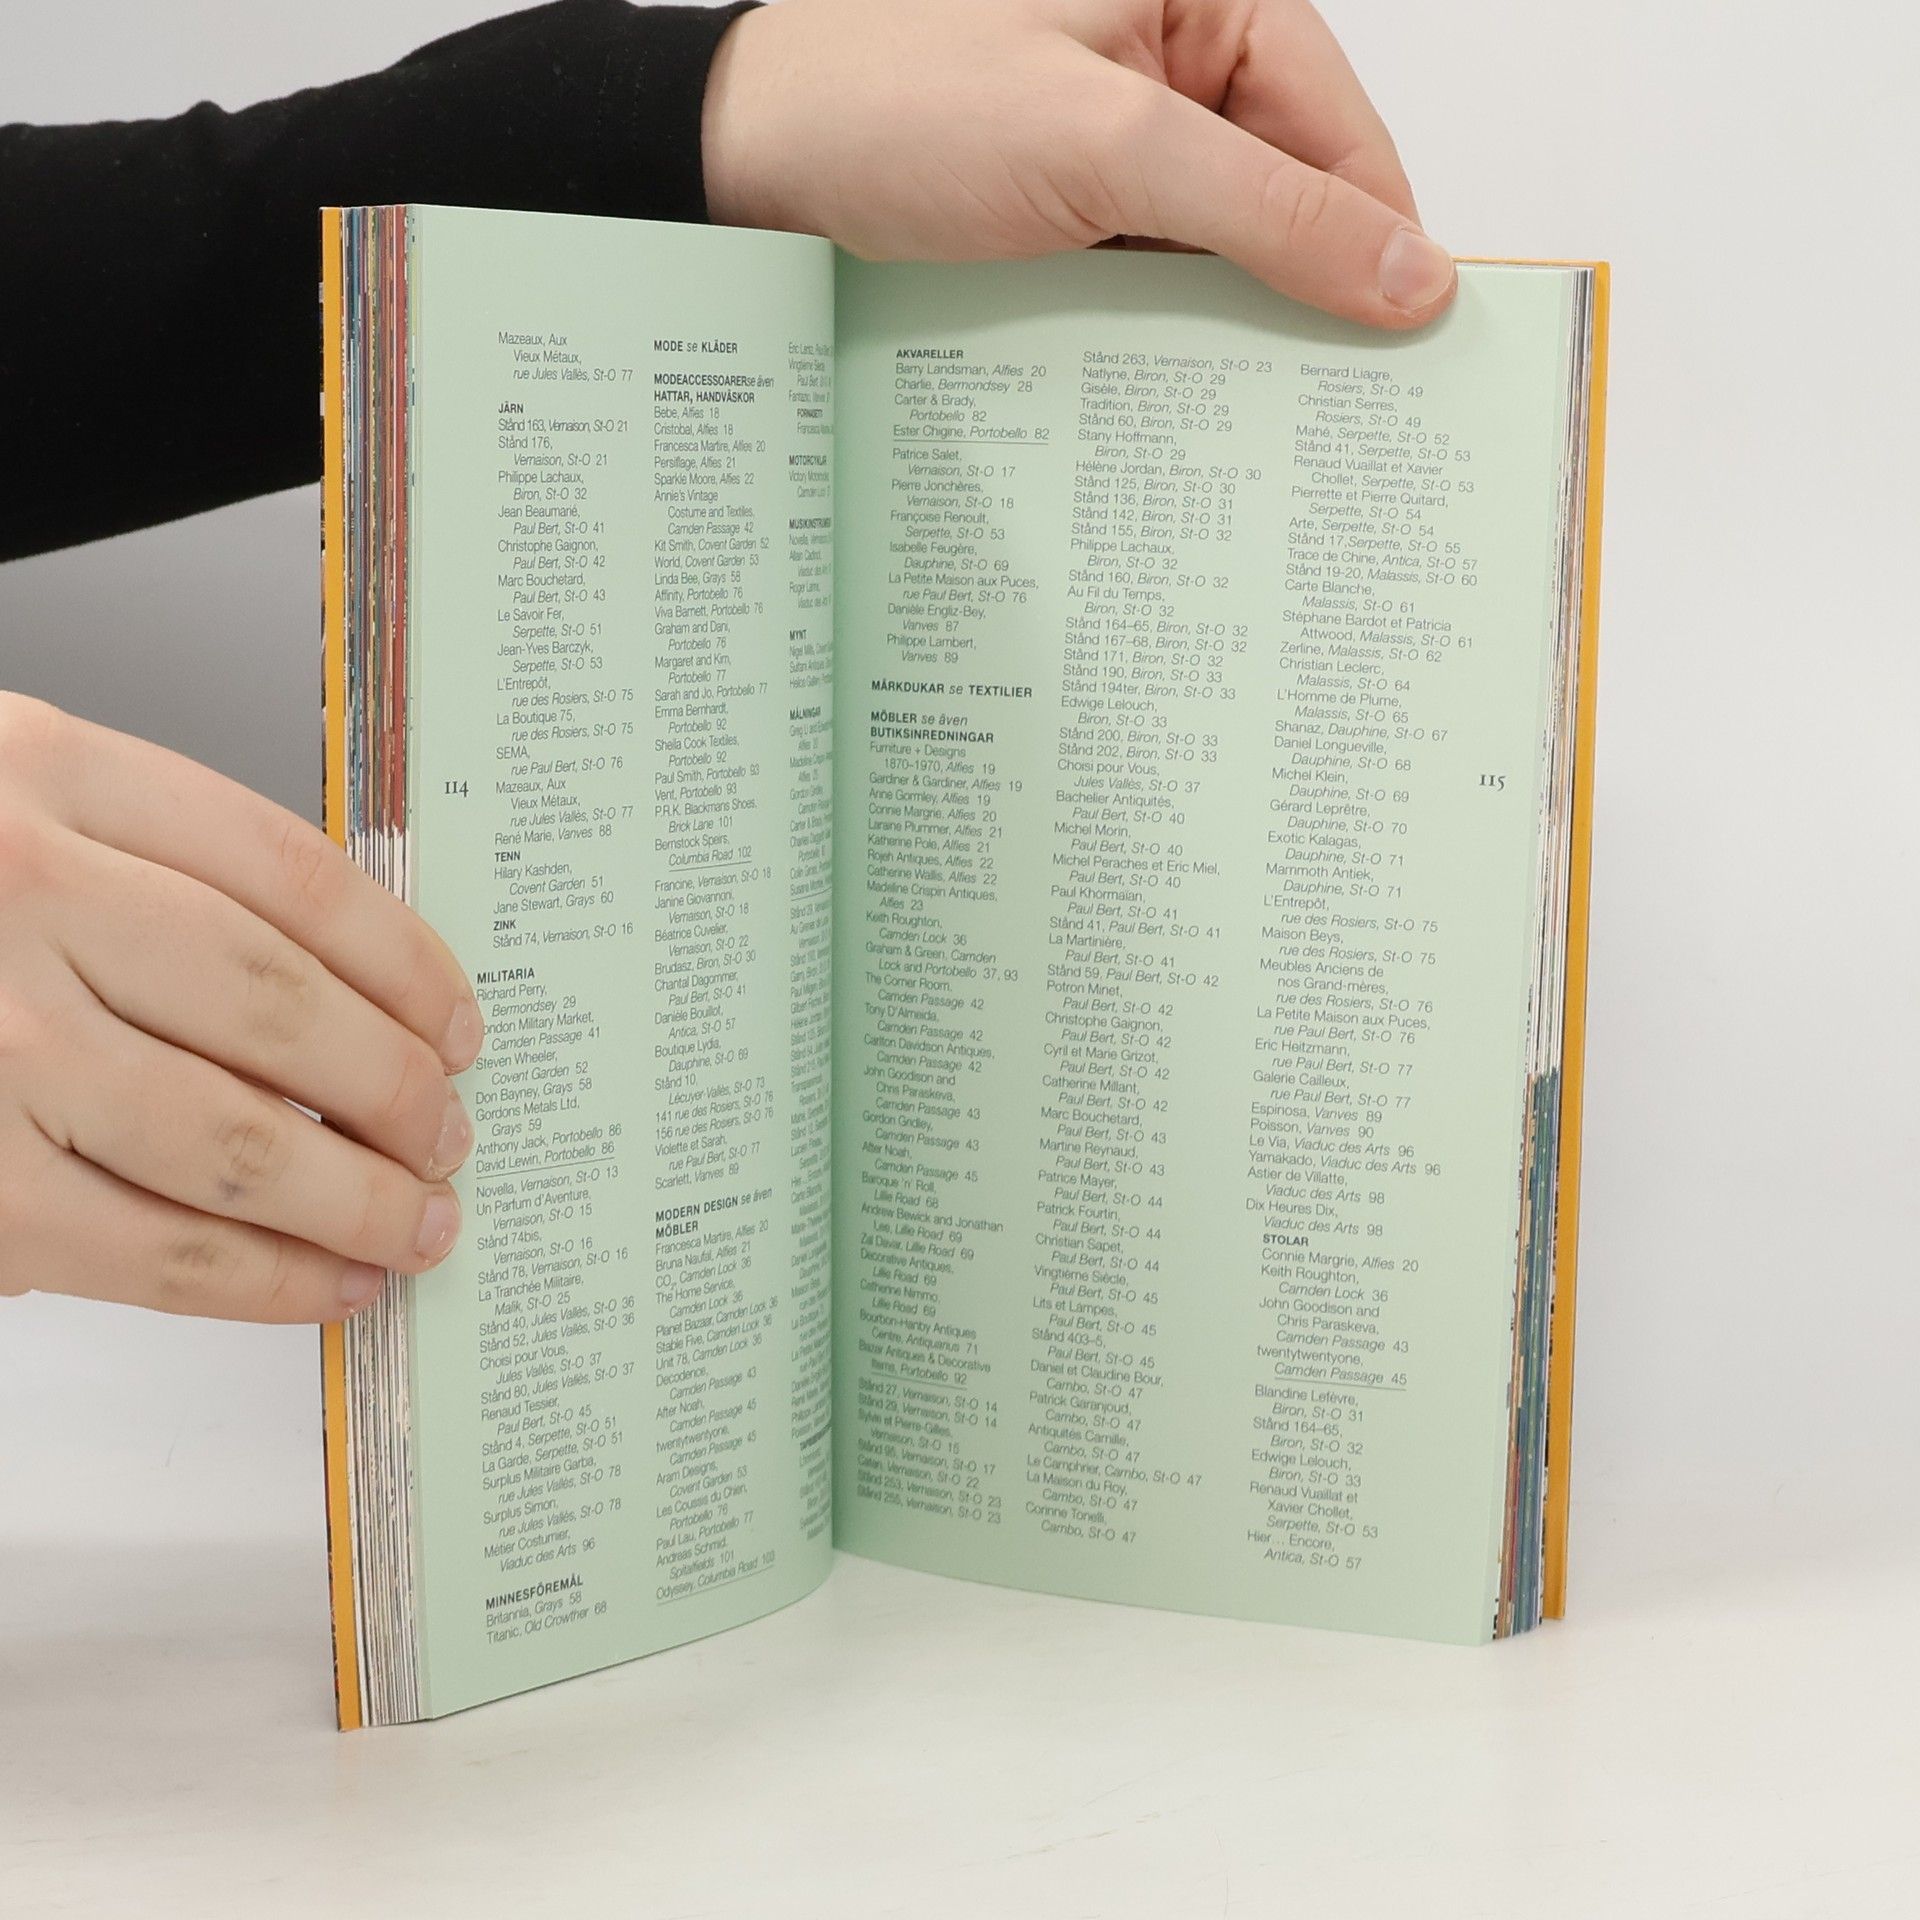 Mazeaux, Aux
Vieux Métaux,
rue Jules Vallès, St-O 77
JÄRN
Stånd 163, Vernaison, St-O 21
Stånd 176,
Vernaison, St-O 21
Philippe Lachaux,
Biron, St-O 32
Jean Beaumarié,
Paul Bert, St-O 41
Christophe Gaignon,
Paul Bert, St-O 42
Marc Bouchetard,
Paul Bert, St-O 43
Le Savoir Fer,
Serpette, St-O 51
Jean-Yves Barczyk,
Serpette, St-O 53
L'Entrepôt,
rue des Rosiers, St-O 75
La Boutique 75,
rue des Rosiers, St-O 75
SEMA,
rue Paul Bert, St-O 76
Mazeaux, Aux
Vieux Métaux,
rue Jules Vallès, St-O 77
René Marie, Vanves 88
TENN
Hilary Kashden,
Covent Garden 51
Jane Stewart, Grays 60
ZINK
Stånd 74, Vernaison, St-O 16
MILITARIA
Richard Perry,
Bermondsey 29
London Military Market,
Camden Passage 41
Steven Wheeler,
Covent Garden 52
Don Bayney, Grays 58
Gordons Metals Ltd,
Grays 59
Anthony Jack, Portobello 86
David Lewin, Portobello 86
Novella, Vernaison, St-O 13
Un Parfum d'Aventure,
Vernaison, St-O 15
Stånd 74bis,
Vernaison, St-O 16
Stånd 78, Vernaison, St-O 16
La Tranchée Militaire,
Malik, St-O 25
Stånd 40, Jules Vallès, St-O 36
Stånd 52, Jules Vallès, St-O 36
Choisi pour Vous,
Jules Vallès, St-O 37
Stånd 80, Jules Vallès, St-O 37
Renaud Tessier,
Paul Bert, St-O 45
Stånd 4, Serpette, St-O 51
La Garde, Serpette, St-O 51
Surplus Militaire Garba,
rue Jules Vallès, St-O 78
Surplus Simon,
rue Jules Vallès, St-O 78
Métier Costumier,
Viaduc des Arts 96
MINNESFÖREMÅL
Britannia, Grays 58
Titanic, Old Crowther 68
114
MODE se KLÄDER
MODEACCESSOARER se även
HATTAR, HANDVÄSKOR
Bebe, Alfies 18
Cristobal, Alfies 18
Francesca Martire, Alfies 20
Persiflage, Alfies 21
Sparkle Moore, Alfies 22
Annie's Vintage
Costume and Textiles,
Camden Passage 42
Kit Smith, Covent Garden 52
World, Covent Garden 53
Linda Bee, Grays 58
Affinity, Portobello 76
Viva Barnett, Portobello 76
Graham and Dani,
Portobello 76
Margaret and Kim,
Portobello 77
Sarah and Jo, Portobello 77
Emma Bernhardt,
Portobello 92
Sheila Cook Textiles,
Portobello 92
Paul Smith, Portobello 93
Vent, Portobello 93
P.R.K. Blackmans Shoes,
Brick Lane 101
Bernstock Speirs,
Columbia Road 102
Francine, Vernaison, St-O 18
Janine Giovannoni,
Vernaison, St-O 18
Béatrice Cuvelier,
Vernaison, St-O 22
Brudasz, Biron, St-O 30
Chantal Dagommer,
Paul Bert, St-O 41
Danièle Bouillot,
Antica, St-O 57
Boutique Lydia,
Dauphine, St-O 69
Stånd 10,
Lécuyer-Vallès, St-O 73
141 rue des Rosiers, St-O 76
156 rue des Rosiers, St-O 76
Violette et Sarah,
rue Paul Bert, St-O 77
Scarlett, Vanves 89
MODERN DESIGN se även
MÖBLER
Francesca Martire, Alfies 20
Bruna Naufal, Alfies 21
CO₂, Camden Lock 36
The Home Service,
Camden Lock 36
Planet Bazaar, Camden Lock 36
Stable Five, Camden Lock 36
Unit 78, Camden Lock 36
Decodence,
Camden Passage 43
After Noah,
Camden Passage 45
twentytwentyone,
Camden Passage 45
Aram Designs,
Covent Garden 53
Les Coussis du Chien,
Portobello 76
Paul Lau, Portobello 77
Andreas Schmid,
Spitalfields 101
Odyssey, Columbia Road 103
MOTORCYKLAR
MYNT
MÅLNINGAR
AKVARELLER
Barry Landsman, Alfies 20
Charlie, Bermondsey 28
Carter & Brady,
Portobello 82
Ester Chigine, Portobello 82
Patrice Salet,
Vernaison, St-O 17
Pierre Jonchères,
Vernaison, St-O 18
Françoise Renoult,
Serpette, St-O 53
Isabelle Feugère,
Dauphine, St-O 69
La Petite Maison aux Puces,
rue Paul Bert, St-O 76
Danièle Engliz-Bey,
Vanves 87
Philippe Lambert,
Vanves 89
MÄRKDUKAR se TEXTILIER
MÖBLER se även
BUTIKSINREDNINGAR
Furniture + Designs
1870–1970, Alfies 19
Gardiner & Gardiner, Alfies 19
Anne Gormley, Alfies 19
Connie Margrie, Alfies 20
Laraine Plummer, Alfies 21
Katherine Pole, Alfies 21
Rojeh Antiques, Alfies 22
Catherine Wallis, Alfies 22
Madeline Crispin Antiques,
Alfies 23
Keith Roughton,
Camden Lock 36
Graham & Green, Camden
Lock and Portobello 37, 93
The Corner Room,
Camden Passage 42
Tony D'Almeida,
Camden Passage 42
Carlton Davidson Antiques,
Camden Passage 42
John Goodison and
Chris Paraskeva,
Camden Passage 43
Gordon Gridley,
Camden Passage 43
After Noah,
Camden Passage 45
Baroque 'n' Roll,
Lillie Road 68
Andrew Bewick and Jonathan
Lee, Lillie Road 69
Zal Davar, Lillie Road 69
Decorative Antiques,
Lillie Road 69
Catherine Nimmo,
Lillie Road 69
Bourbon-Hanby Antiques
Centre, Antiquarius 71
Bazar Antiques & Decorative
Items, Portobello 92
Stånd 27, Vernaison, St-O 14
Stånd 29, Vernaison, St-O 14
Sylvie et Pierre-Gilles,
Vernaison, St-O 15
Stånd 95, Vernaison, St-O 17
Vernaison, St-O 22
Stånd 253, Vernaison, St-O 23
Stånd 255, Vernaison, St-O 23
Stånd 263, Vernaison, St-O 23
Natlyne, Biron, St-O 29
Gisèle, Biron, St-O 29
Tradition, Biron, St-O 29
Stånd 60, Biron, St-O 29
Stany Hoffmann,
Biron, St-O 29
Hélène Jordan, Biron, St-O 30
Stånd 125, Biron, St-O 30
Stånd 136, Biron, St-O 31
Stånd 142, Biron, St-O 31
Stånd 155, Biron, St-O 32
Philippe Lachaux,
Biron, St-O 32
Stånd 160, Biron, St-O 32
Au Fil du Temps,
Biron, St-O 32
Stånd 164–65, Biron, St-O 32
Stånd 167–68, Biron, St-O 32
Stånd 171, Biron, St-O 32
Stånd 190, Biron, St-O 33
Stånd 194ter, Biron, St-O 33
Edwige Lelouch,
Biron, St-O 33
Stånd 200, Biron, St-O 33
Stånd 202, Biron, St-O 33
Choisi pour Vous,
Jules Vallès, St-O 37
Bachelier Antiquités,
Paul Bert, St-O 40
Michel Morin,
Paul Bert, St-O 40
Michel Peraches et Eric Miel,
Paul Bert, St-O 40
Paul Khormaïan,
Paul Bert, St-O 41
Stånd 41, Paul Bert, St-O 41
La Martinière,
Paul Bert, St-O 41
Stånd 59, Paul Bert, St-O 42
Potron Minet,
Paul Bert, St-O 42
Christophe Gaignon,
Paul Bert, St-O 42
Cyril et Marie Grizot,
Paul Bert, St-O 42
Catherine Millant,
Paul Bert, St-O 42
Marc Bouchetard,
Paul Bert, St-O 43
Martine Reynaud,
Paul Bert, St-O 43
Patrice Mayer,
Paul Bert, St-O 44
Patrick Fourtin,
Paul Bert, St-O 44
Christian Sapet,
Paul Bert, St-O 44
Vingtième Siècle,
Paul Bert, St-O 45
Lits et Lampes,
Paul Bert, St-O 45
Stånd 403–5,
Paul Bert, St-O 45
Daniel et Claudine Bour,
Cambo, St-O 47
Patrick Garanjoud,
Cambo, St-O 47
Antiquités Camille,
Cambo, St-O 47
Le Camphrier, Cambo, St-O 47
La Maison du Roy,
Cambo, St-O 47
Corinne Tonelli,
Cambo, St-O 47
Bernard Liagre,
Rosiers, St-O 49
Christian Serres,
Rosiers, St-O 49
Mahé, Serpette, St-O 52
Stånd 41, Serpette, St-O 53
Renaud Vuaillat et Xavier
Chollet, Serpette, St-O 53
Pierrette et Pierre Quitard,
Serpette, St-O 54
Arte, Serpette, St-O 54
Stånd 17, Serpette, St-O 55
Trace de Chine, Antica, St-O 57
Stånd 19-20, Malassis, St-O 60
Carte Blanche,
Malassis, St-O 61
Stéphane Bardot et Patricia
Attwood, Malassis, St-O 61
Zerline, Malassis, St-O 62
Christian Leclerc,
Malassis, St-O 64
L'Homme de Plume,
Malassis, St-O 65
Shanaz, Dauphine, St-O 67
Daniel Longueville,
Dauphine, St-O 68
Michel Klein,
Dauphine, St-O 69
Gérard Leprêtre,
Dauphine, St-O 70
Exotic Kalagas,
Dauphine, St-O 71
Mammoth Antiek,
Dauphine, St-O 71
L'Entrepôt,
rue des Rosiers, St-O 75
Maison Beys,
rue des Rosiers, St-O 75
Meubles Anciens de
nos Grand-mères,
rue des Rosiers, St-O 76
La Petite Maison aux Puces,
rue Paul Bert, St-O 76
Eric Heitzmann,
rue Paul Bert, St-O 77
Galerie Cailleux,
rue Paul Bert, St-O 77
Espinosa, Vanves 89
Poisson, Vanves 90
Le Via, Viaduc des Arts 96
Yamakado, Viaduc des Arts 96
Astier de Villatte,
Viaduc des Arts 98
Dix Heures Dix,
Viaduc des Arts 98
STOLAR
Connie Margrie, Alfies 20
Keith Roughton,
Camden Lock 36
John Goodison and
Chris Paraskeva,
Camden Passage 43
twentytwentyone,
Camden Passage 45
Blandine Lefèvre,
Biron, St-O 31
Stånd 164–65,
Biron, St-O 32
Edwige Lelouch,
Biron, St-O 33
Renaud Vuaillat et
Xavier Chollet,
Serpette, St-O 53
Hier... Encore,
Antica, St-O 57
115